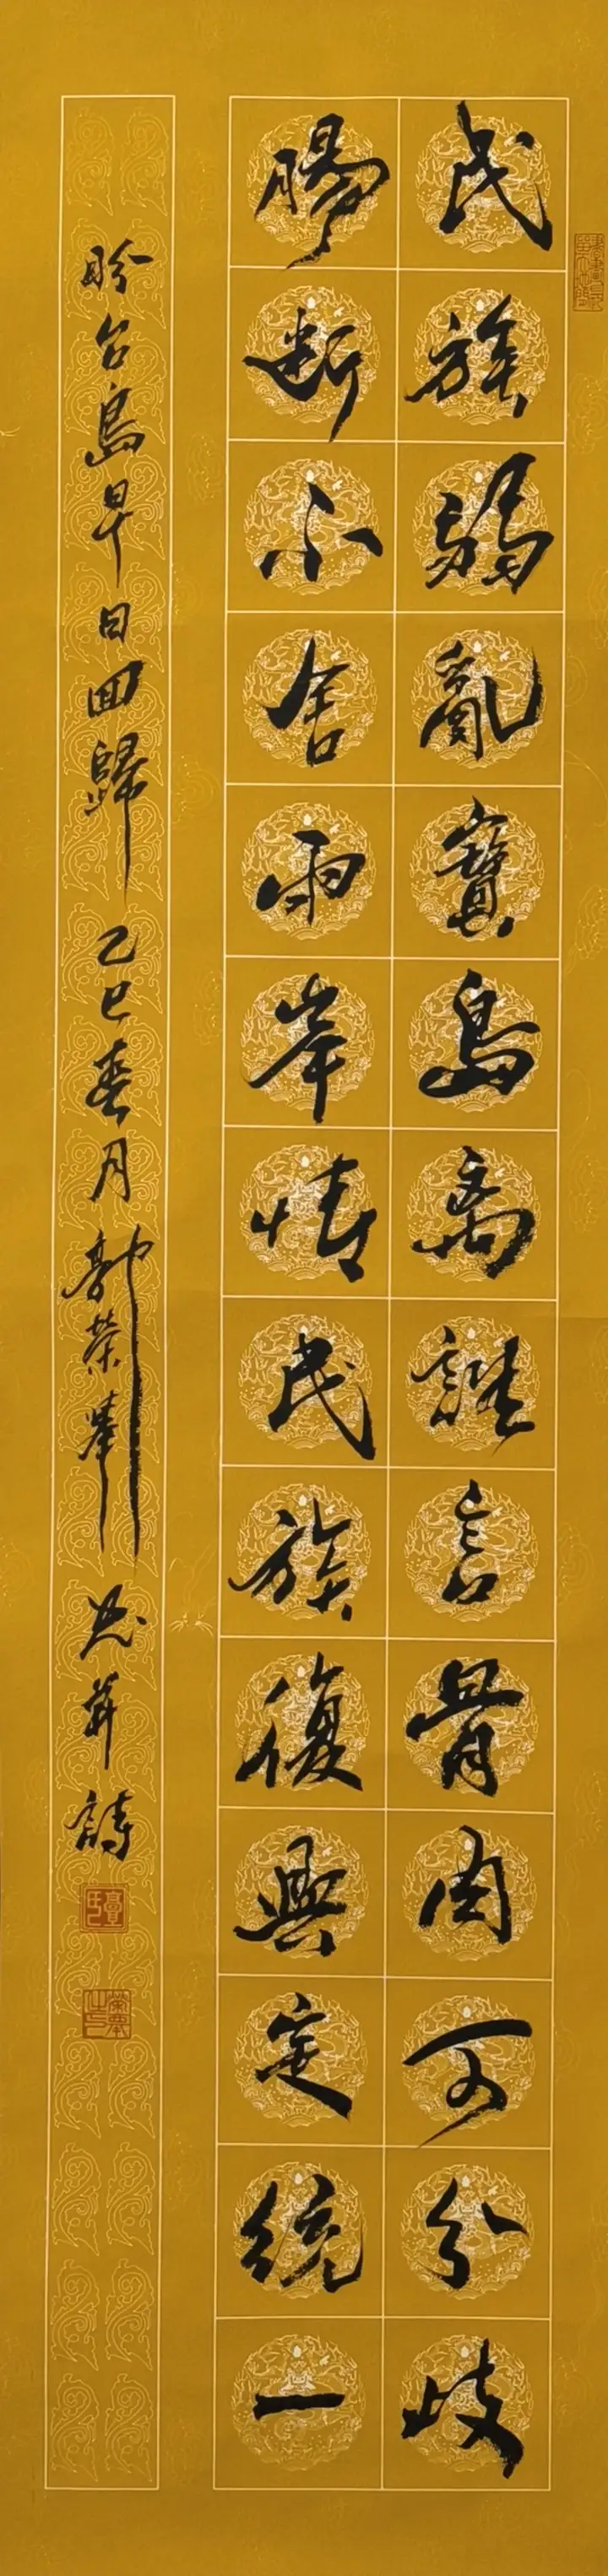 民族弱亂寶島离誰言骨肉可分歧
腸斷不舍兩岸情民族復興定統一
盼台島早日回歸 乙巳春月 郭榮峯 詩